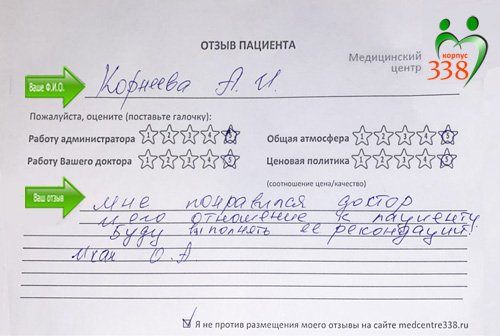 ОТЗЫВ ПАЦИЕНТА
Медицинский центр
корпус 338
Ваше Ф.И.О.
Корнеева А. И.
Пожалуйста, оцените (поставьте галочку):
Работу администратора 1 2 3 4 5 Общая атмосфера 1 2 3 4 5
Работу Вашего доктора 1 2 3 4 5 Ценовая политика 1 2 3 4 5
(соотношение цена/качество)
Ваш отзыв
Мне понравился доктор
и его отношение к пациенту.
Буду выполнять её рекондаций!
О. А.
Я не против размещения моего отзывы на сайте medcentre338.ru